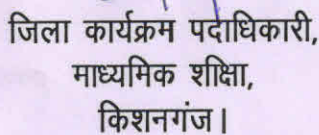 जिला कार्यक्रम पदाधिकारी,
माध्यमिक शिक्षा,
किशनगंज।